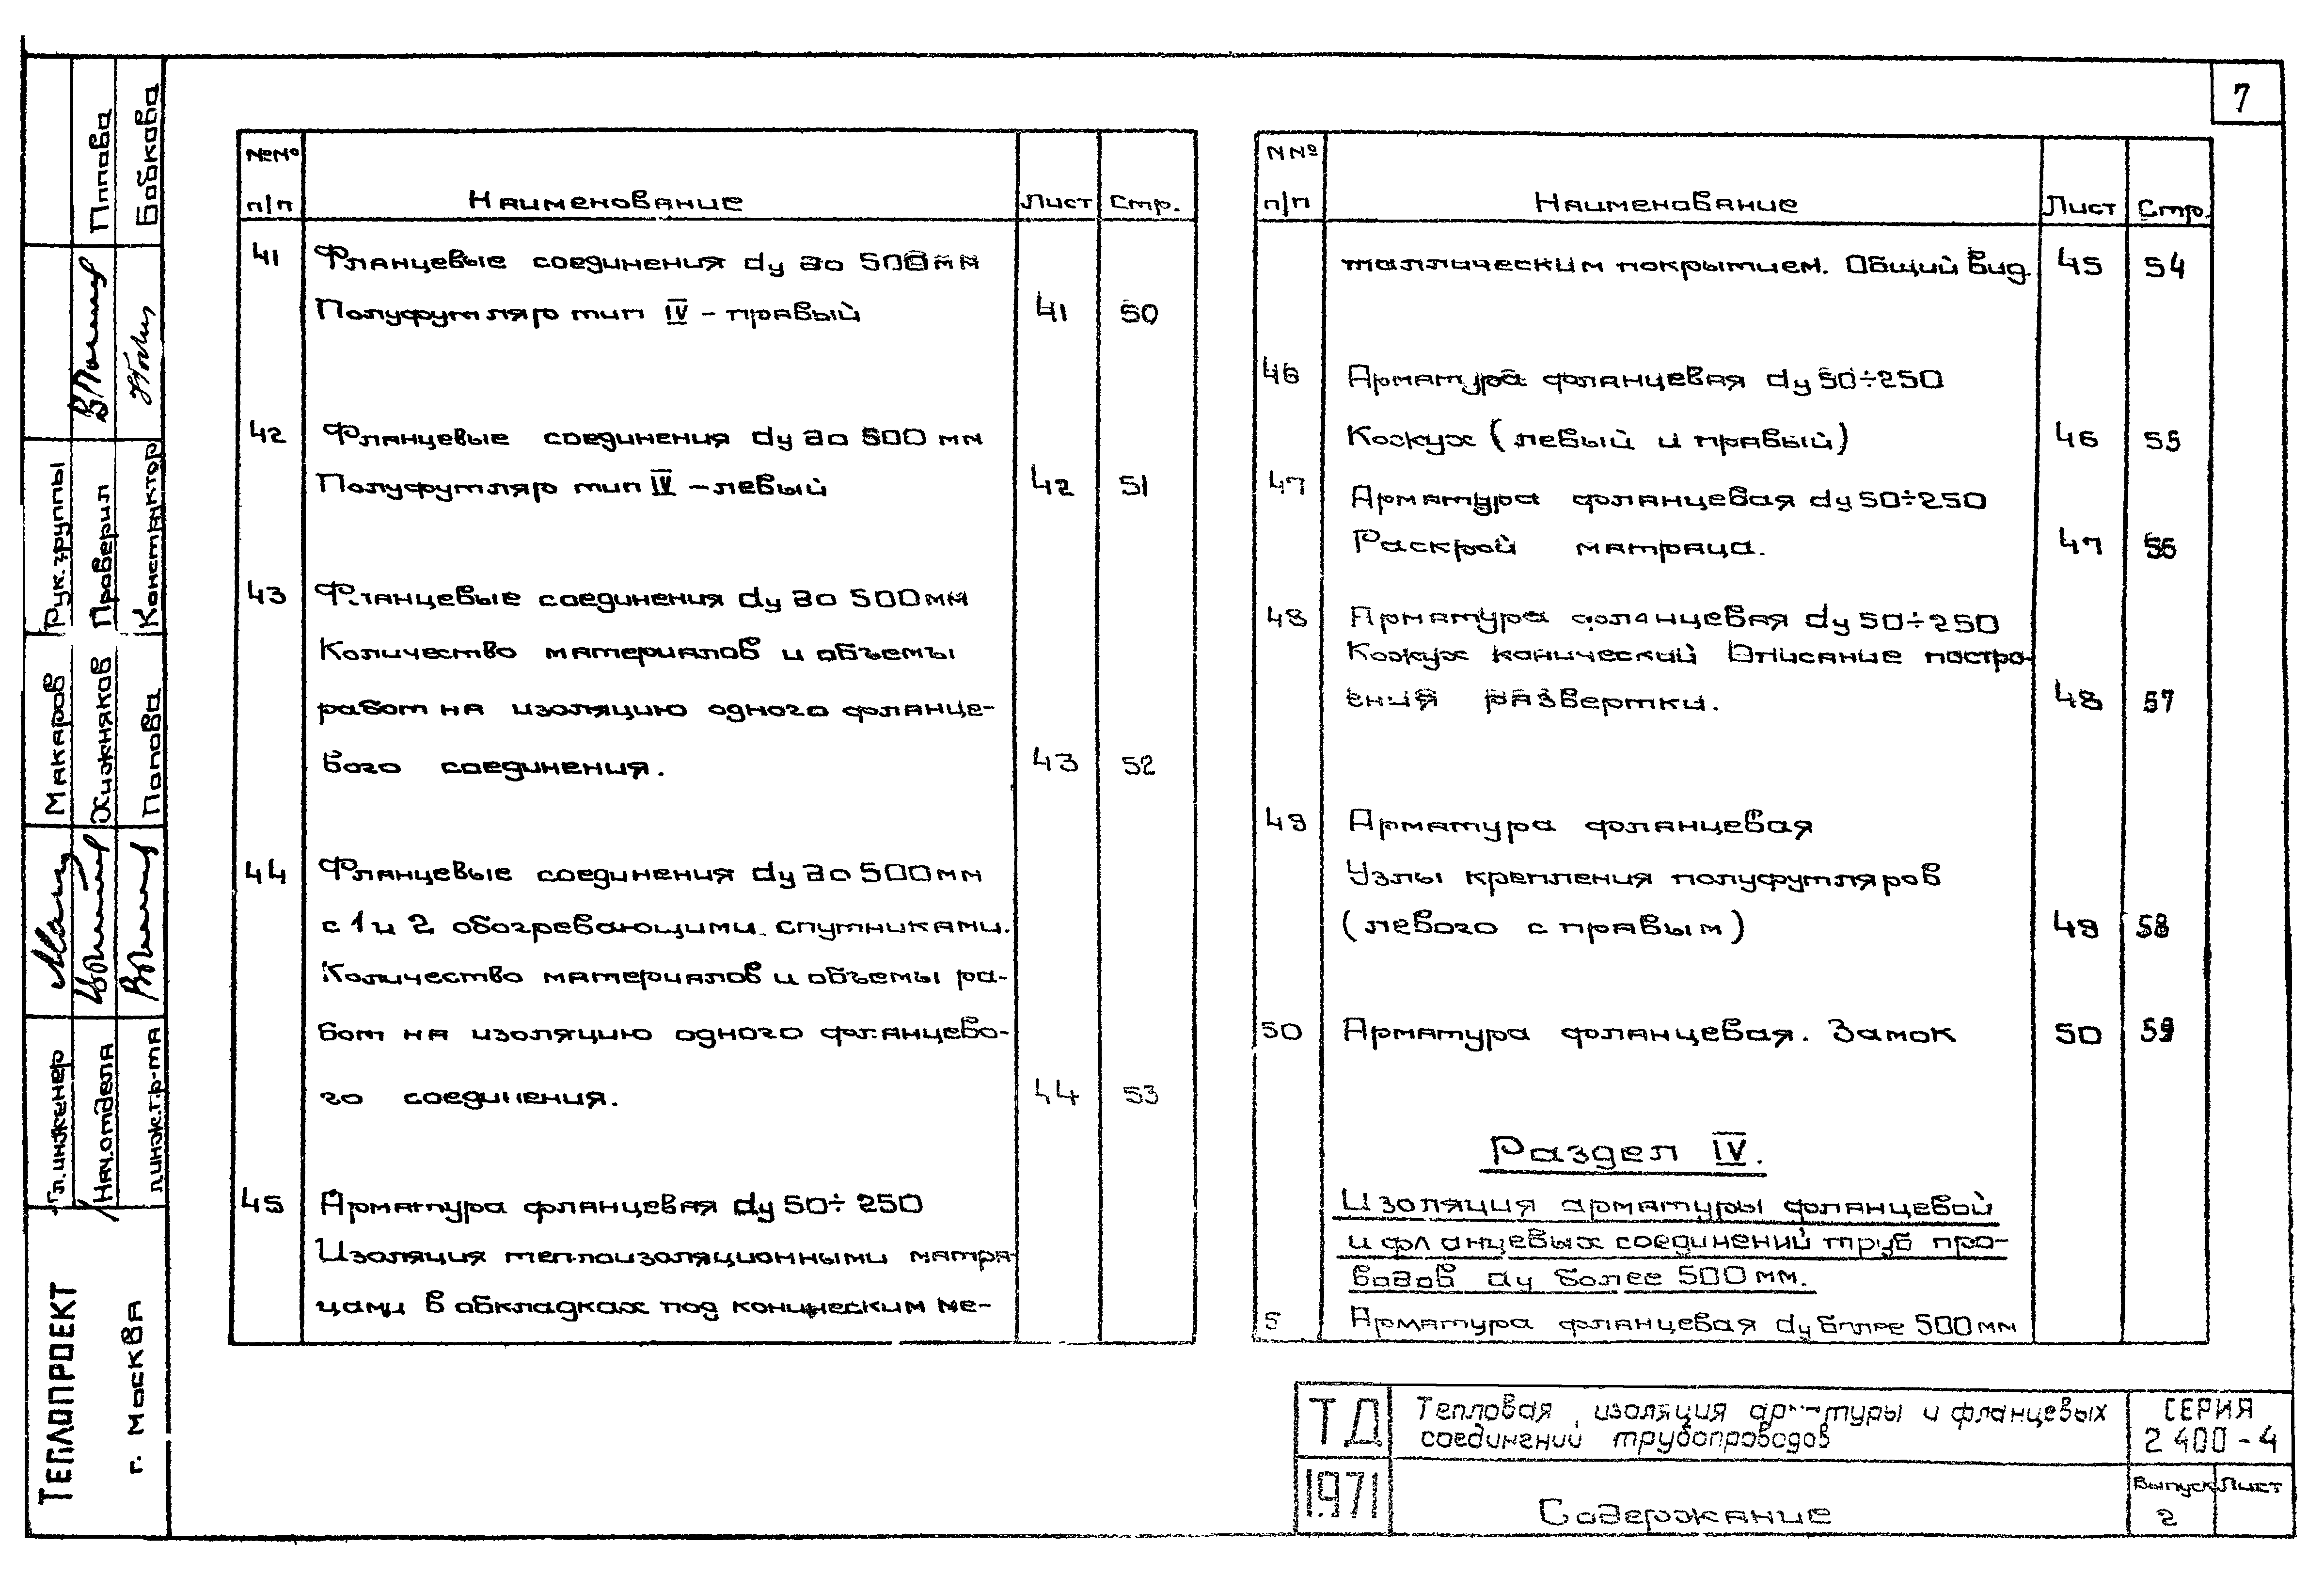 7
№№
п/п Наименование Лист Стр.
41 Фланцевые соединения dу до 500мм
Полуфутляр тип IV – правый 41 50
42 Фланцевые соединения dу до 500 мм
Полуфутляр тип IV – левый 42 51
43 Фланцевые соединения dу до 500мм
Количество материалов и объемы
работ на изоляцию одного фланце-
вого соединения. 43 52
44 Фланцевые соединения dу до 500мм
с 1 и 2 обогревающими спутниками.
Количество материалов и объемы ра-
бот на изоляцию одного фланцево-
го соединения. 44 53
45 Арматура фланцевая dу 50÷250
Изоляция теплоизоляционными матра-
цами в обкладках под коническим ме-
NN°
п/п Наименование Лист Стр.
таллическим покрытием. Общий вид. 45 54
46 Арматура фланцевая dу 50÷250
Кожух (левый и правый) 46 55
47 Арматура фланцевая dу 50÷250
Раскрой матраца. 47 56
48 Арматура фланцевая dу 50÷250
Кожух конический Описание постро-
ения развертки. 48 57
49 Арматура фланцевая
Узлы крепления полуфутляров
(левого с правым) 49 58
50 Арматура фланцевая. Замок 50 59
Раздел IV.
Изоляция арматуры фланцевой
и фланцевых соединений трубопро-
водов dу более 500 мм.
5 Арматура фланцевая dу более 500мм
ТД
1971
Тепловая изоляция арматуры и фланцевых
соединений трубопроводов
Содержание
СЕРИЯ
2 400-4
Выпуск Лист
2
Попова
Бобкова
Рук. группы
Проверил
Конструктор
Макаров
Хижняков
Попова
Гл. инженер
Нач. отдела
гл.инж.пр-та
ТЕПЛОПРОЕКТ
г. Москва